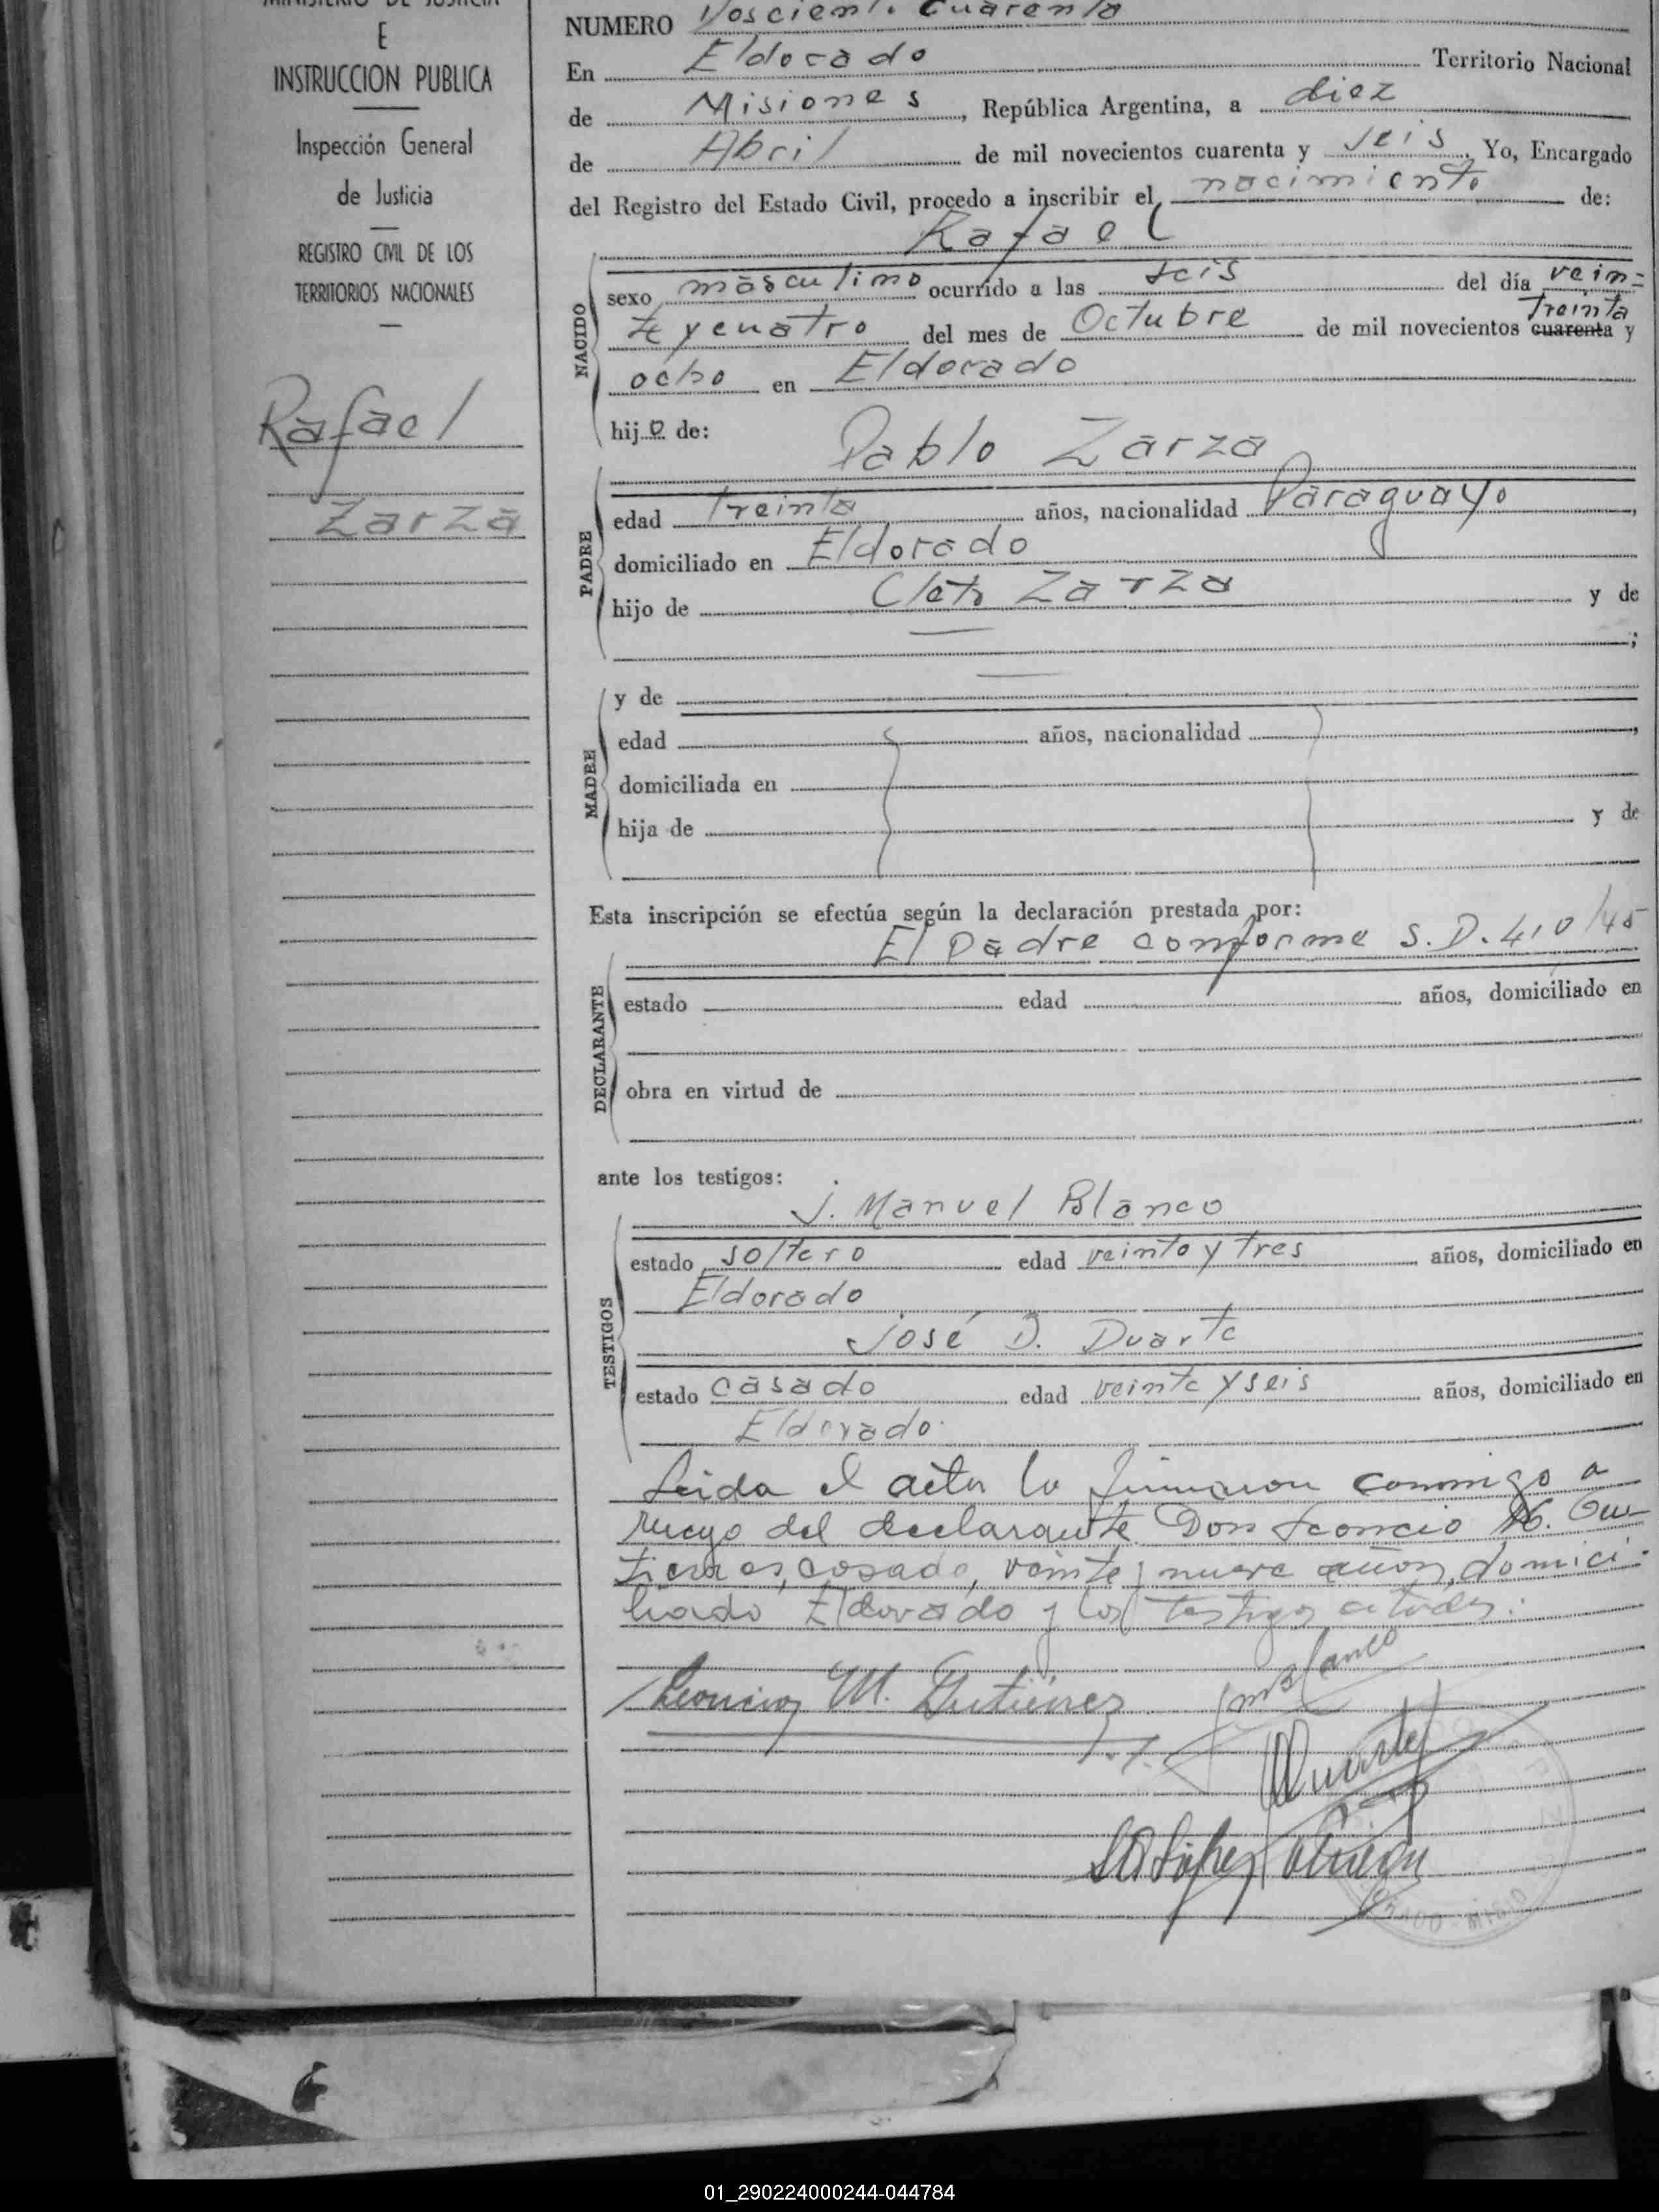 MINISTERIO DE JUSTICIA
E
INSTRUCCION PUBLICA
Inspección General
de Justicia
REGISTRO CIVIL DE LOS
TERRITORIOS NACIONALES
Rafael
Zarza
NUMERO Doscient. Cuarenta
En Eldorado Territorio Nacional
de Misiones, República Argentina, a diez
de Abril de mil novecientos cuarenta y seis. Yo, Encargado
del Registro del Estado Civil, procedo a inscribir el nacimiento de:
Rafael
NACIDO
sexo masculino ocurrido a las seis del día vein=
te y cuatro del mes de Octubre de mil novecientos cuarenta treinta y
ocho en Eldorado
hijo de:
Pablo Zarza
PADRE
edad treinta años, nacionalidad Paraguayo,
domiciliado en Eldorado
hijo de Cleto Zarza y de
;
MADRE
y de
edad años, nacionalidad ,
domiciliada en
hija de y de
Esta inscripción se efectúa según la declaración prestada por:
El Padre conforme S.D. 410/45
DECLARANTE
estado edad años, domiciliado en
obra en virtud de
ante los testigos:
J. Manuel Blanco
TESTIGOS
estado soltero edad veinte y tres años, domiciliado en
Eldorado
José D. Duarte
estado casado edad veinte y seis años, domiciliado en
Eldorado.
Leida el acta la firmaron conmigo a
ruego del declarante Don Leoncio M. Gu-
tierres, casado, veinte y nueve años, domici-
liado Eldorado y los testigos citados.
Leoncio M. Gutiérrez
JMBlanco
Duarte
01_290224000244-044784